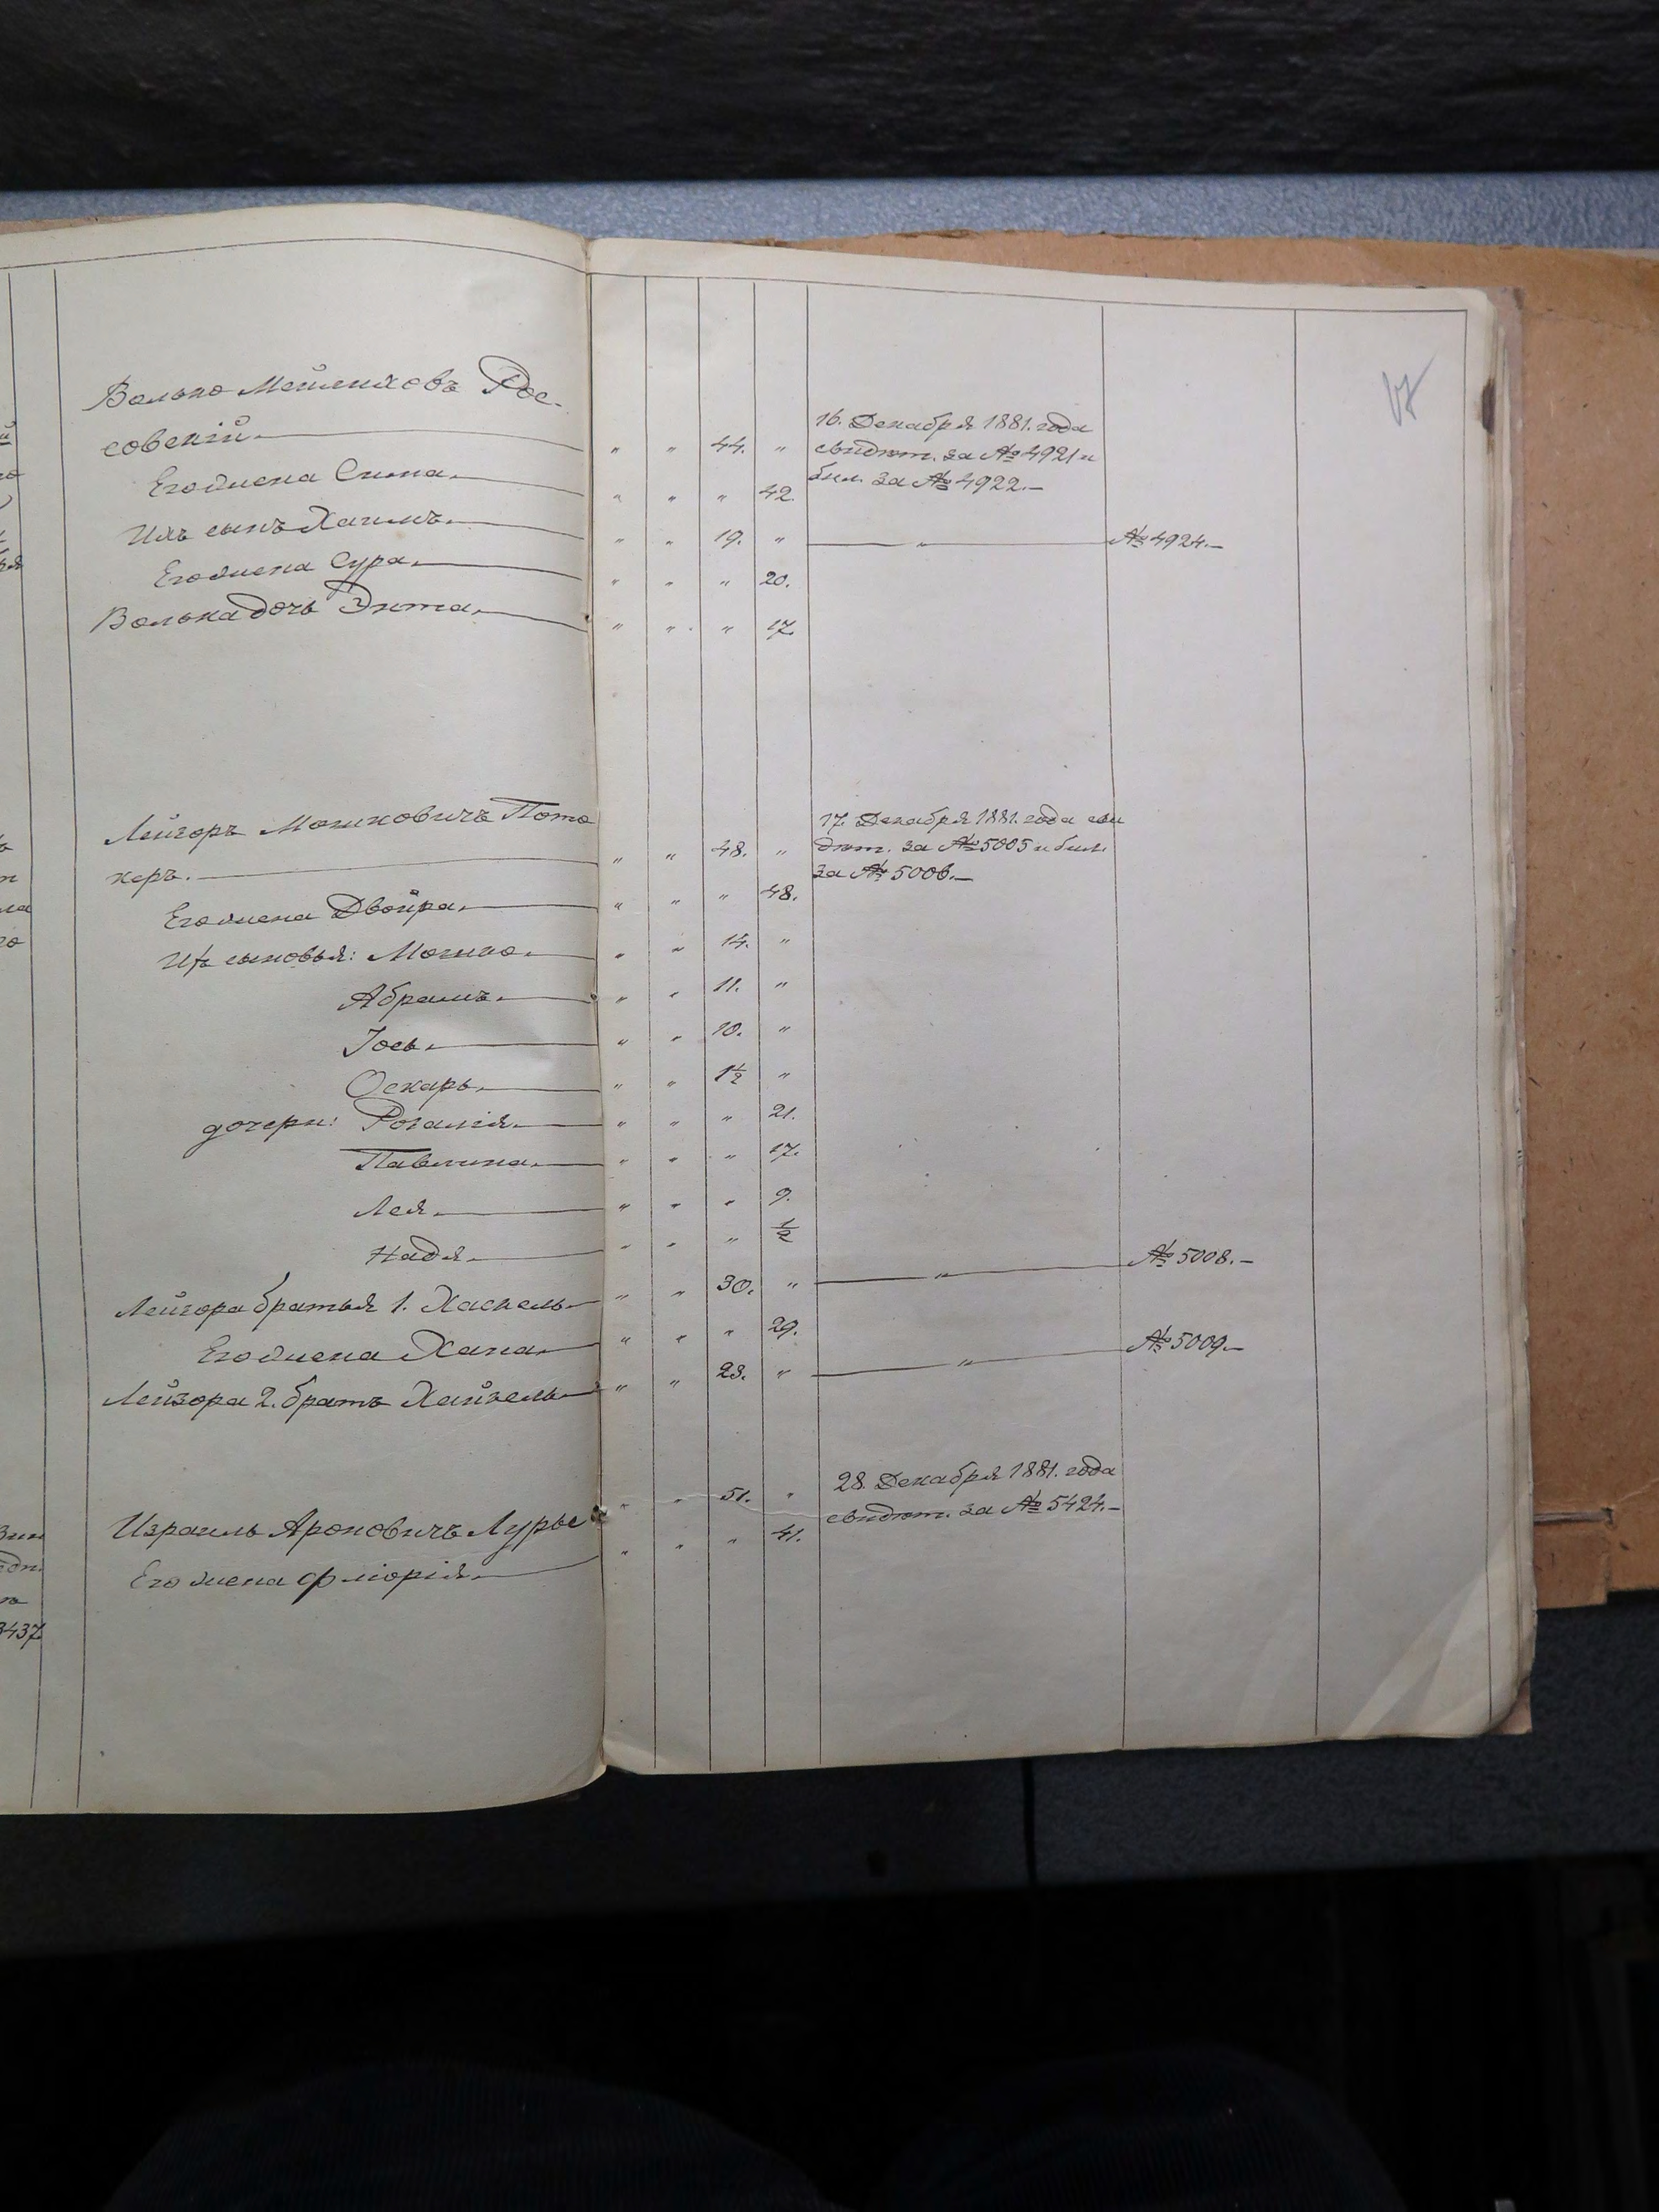 Волько Мейлиховъ Рос-
совскій. " " 44. " 16. Декабря 1881. года
свидѣт. за № 4921 и
Его жена Сима. " " " 42. бил. за № 4922.
Ихъ сынъ Хаимъ. " " 19. " " № 4924.
Его жена Сура. " " " 20.
Волька дочь Энта. " " " 17.
Лейзоръ Мошковичъ Пото
керъ. " " 48. " 17. Декабря 1881. года сви
дѣт. за № 5005 и бил.
за № 5006.
Его жена Двойра. " " " 48.
Ихъ сыновья: Мошко. " " 14. "
Абрамъ. " " 11. "
Іось. " " 10. "
Оскаръ. " " 1½ "
дочери: Розалія. " " " 21.
Павлина. " " " 17.
Лея. " " " 9.
Надя. " " " ½
Лейзора братья 1. Хаскель " " 30. " " № 5008.
Его жена Хана. " " " 29.
Лейзора 2. братъ Хайкель " " 23. " " № 5009.
Израиль Ароновичъ Лурье " " 51. " 28. Декабря 1881. года
свидѣт. за № 5424.
Его жена Флорія. " " " 41.
3437